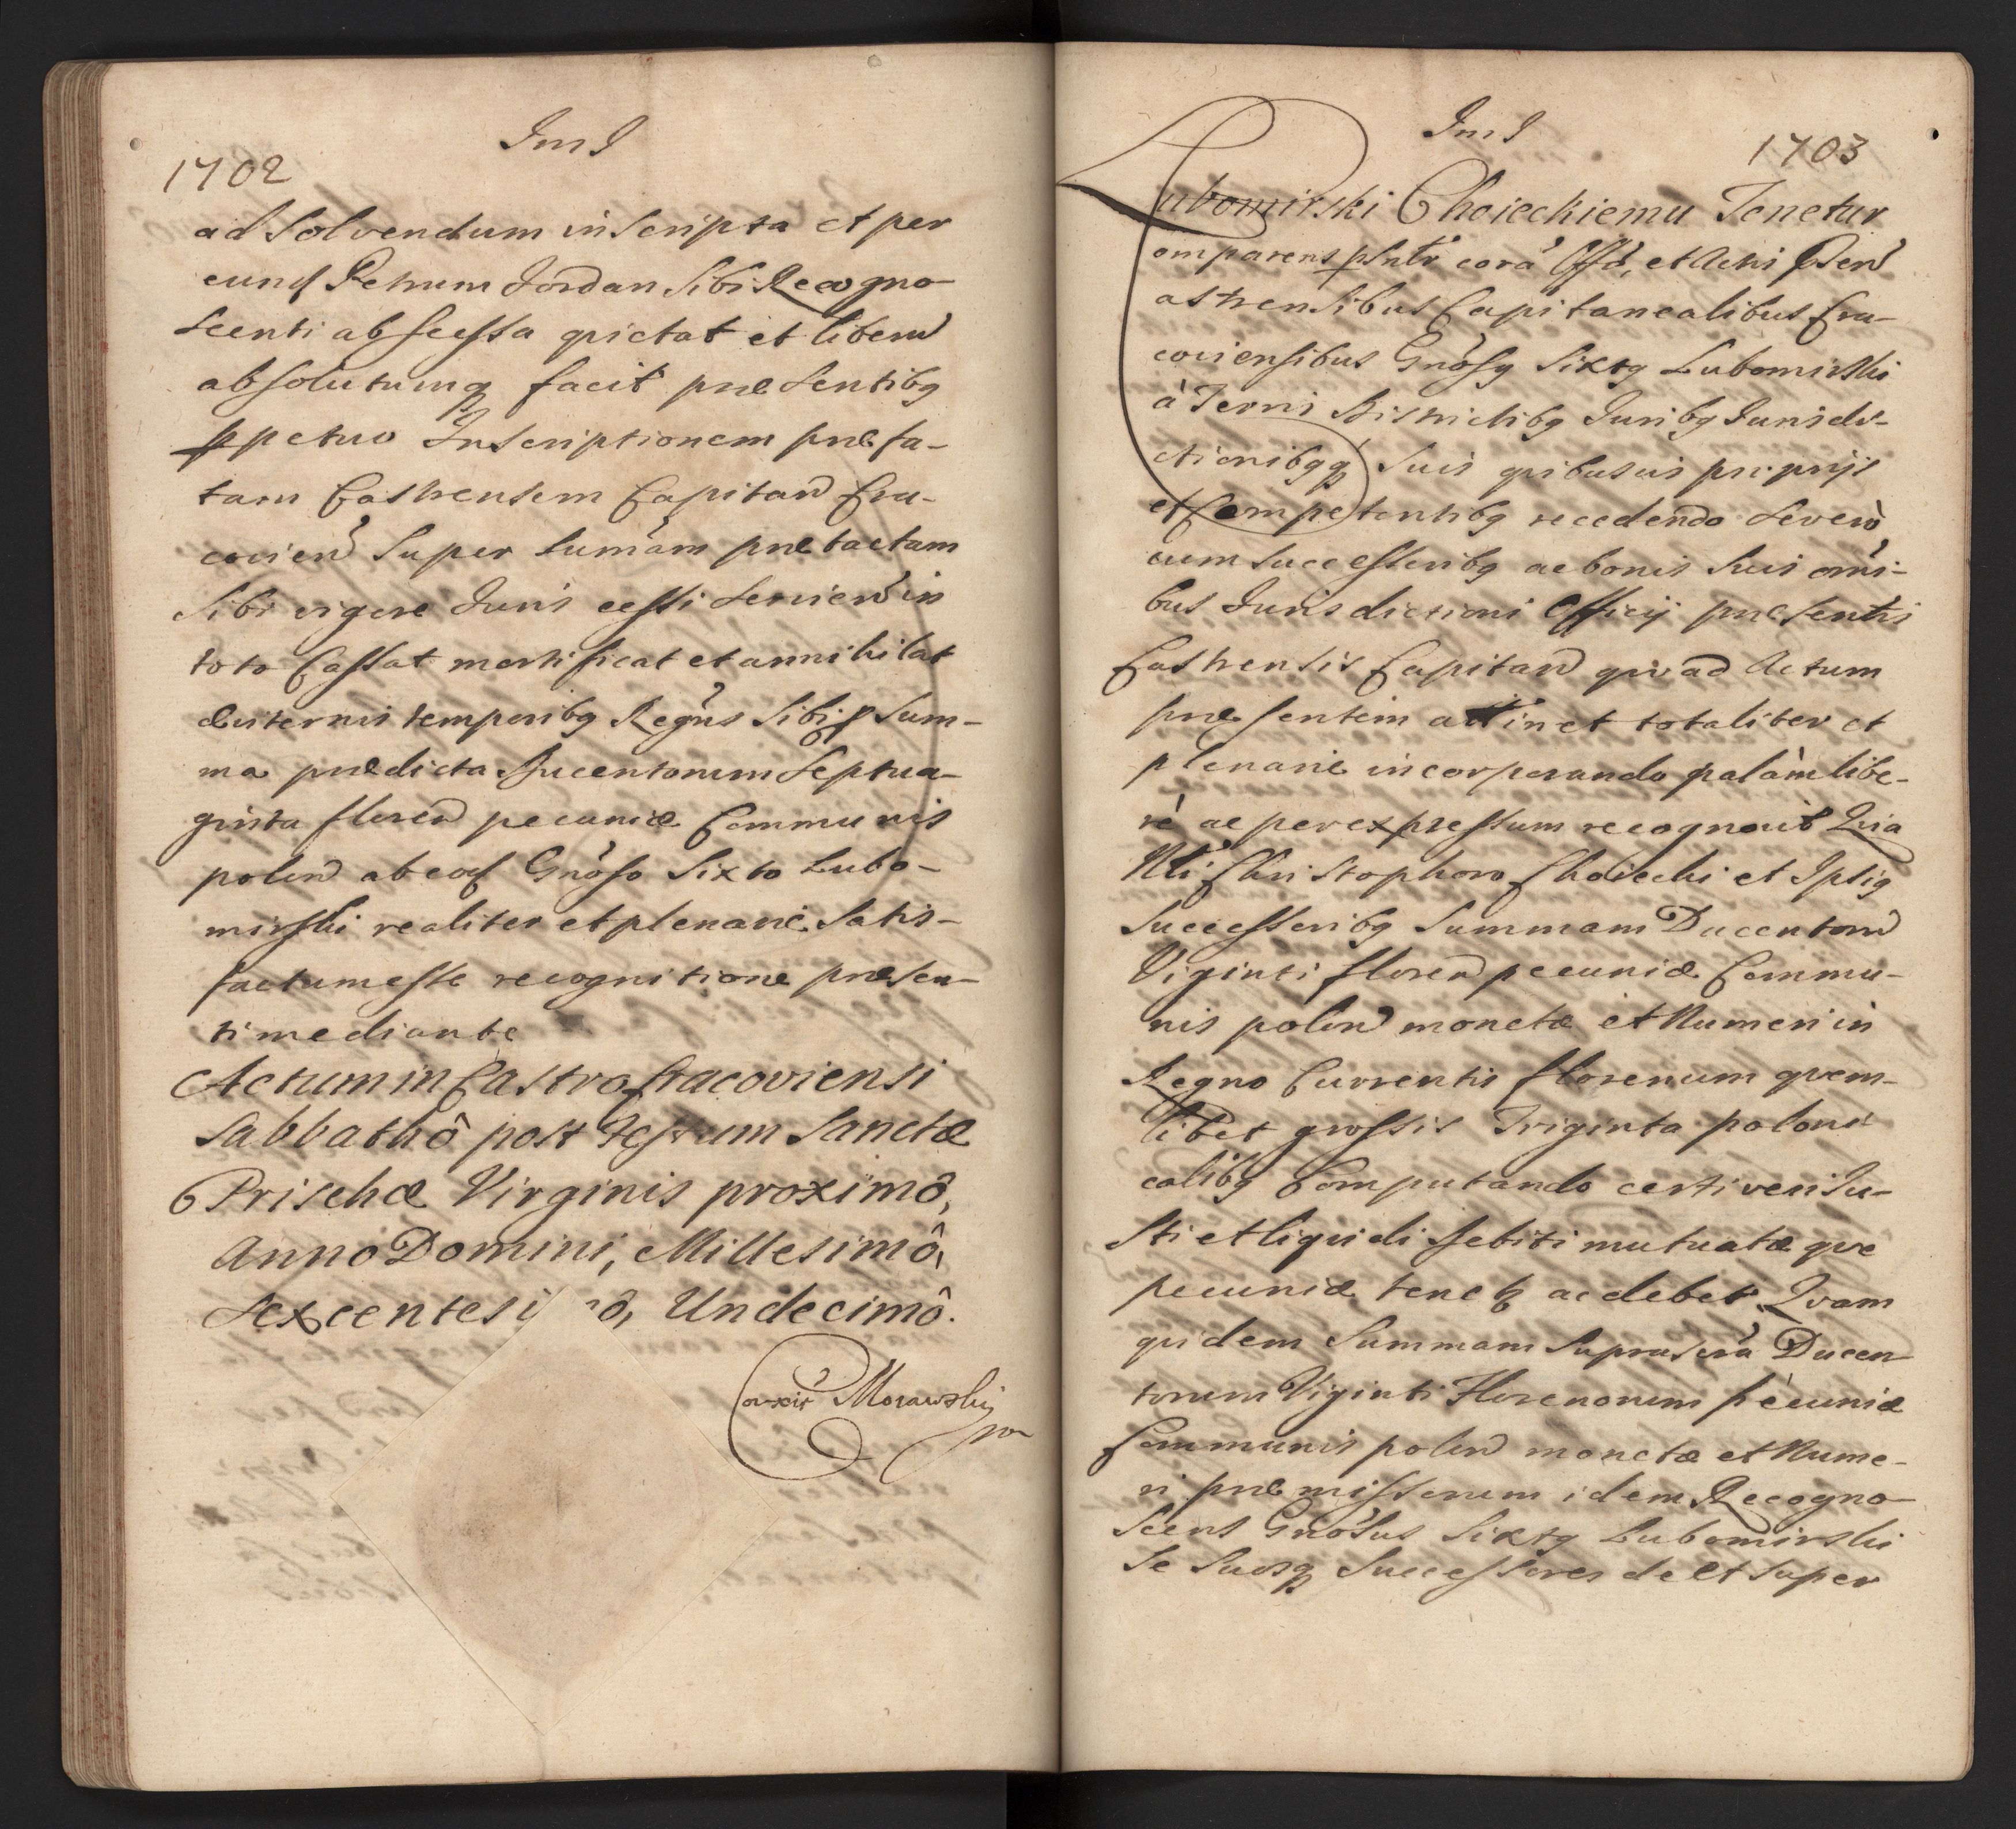 Ins I
1702
ad Solvendum inscripta et per
eund Petrum Jordan Sibi Recogno-
scenti abscessa quietat et liberũ
absolutumq facit præsentibq
ppetuo Inscriptionem præfa-
tam Castrensem Capitan̄ Cra-
covien̄ Super Sum̃am prætactam
Sibi vigore Juris cessi servien̄ in
toto Cassat mortificat et annihilat
æviternis temporibq Recg̃ns Sibi Sum-
ma prædicta Ducentorum Septua-
ginta floren̄ pecuniæ Communis
polon̄ ab eod Gnõso Sixto Lubo-
mirski realiter et plenarie Satis-
factum esse recognitione præsen-
ti mediante
Actum in Castro Cracoviensi
Sabbathô post Festum Sanctæ
Prischæ Virginis proximô,
Anno Domini, Millesimô,
Sexcentesi ô, Undecimô.
Correxit Morawski
mp
Ins I
1703
Lubomirski Choieckiemu Tenetur
Comparens psntr corã Offõ, et Actis psen̄
Castrensibus Capitanealibus Cra-
coviensibus Gnõsq Sixtq Lubomirski
à Terris Districtibq Juribq Jurisdi-
ctionibqq Suis quibusvis proprijs
et Competentibq recedendo Severò
cum Successoribq ac bonis Suis om̃i-
bus Jurisdictioni Officij præsentis
Castrensis Capitan̄ quoad Actum
præsentem attinet totaliter et
plenarie incorporando palàm libe-
rè ac per expressum recognovit Quia
Nli Christophoro Choiecki et Ipsiq
Successoribq Summam Ducentorũ
Viginti floren̄ pecuniæ Commu-
nis polon̄ monetæ et Numeri in
Regno Currentis florenum quem-
libet grossis Triginta poloni-
calibq Computando certi veri Ju-
sti et liquidi debiti mutuatæ qve
pecuniæ tenetq ac debet Qvam
quidem Summam Suprascrã Ducen
torum Viginti Florenorum pecuniæ
Communis polon̄ monetæ et Nume-
ri præmissorum idem Recogno-
scens Gnõsus Sixtq Lubomirski
Se Suosq Successores de et Super